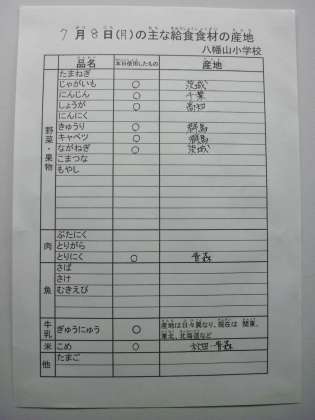 7月8日(月)の主な給食食材の産地
八幡山小学校
品名 本日使用したもの 産地
野菜・果物
たまねぎ
じゃがいも ○ 茨城
にんじん ○ 千葉
しょうが ○ 高知
にんにく
きゅうり ○ 群馬
キャベツ ○ 群馬
ながねぎ ○ 茨城
こまつな
もやし
肉
ぶたにく
とりがら
とりにく ○ 青森
魚
さば
さけ
むきえび
牛乳 ぎゅうにゅう ○ 産地は日々異なり、現在は 関東、
東北、北海道など
米 こめ ○ 秋田・青森
他 たまご